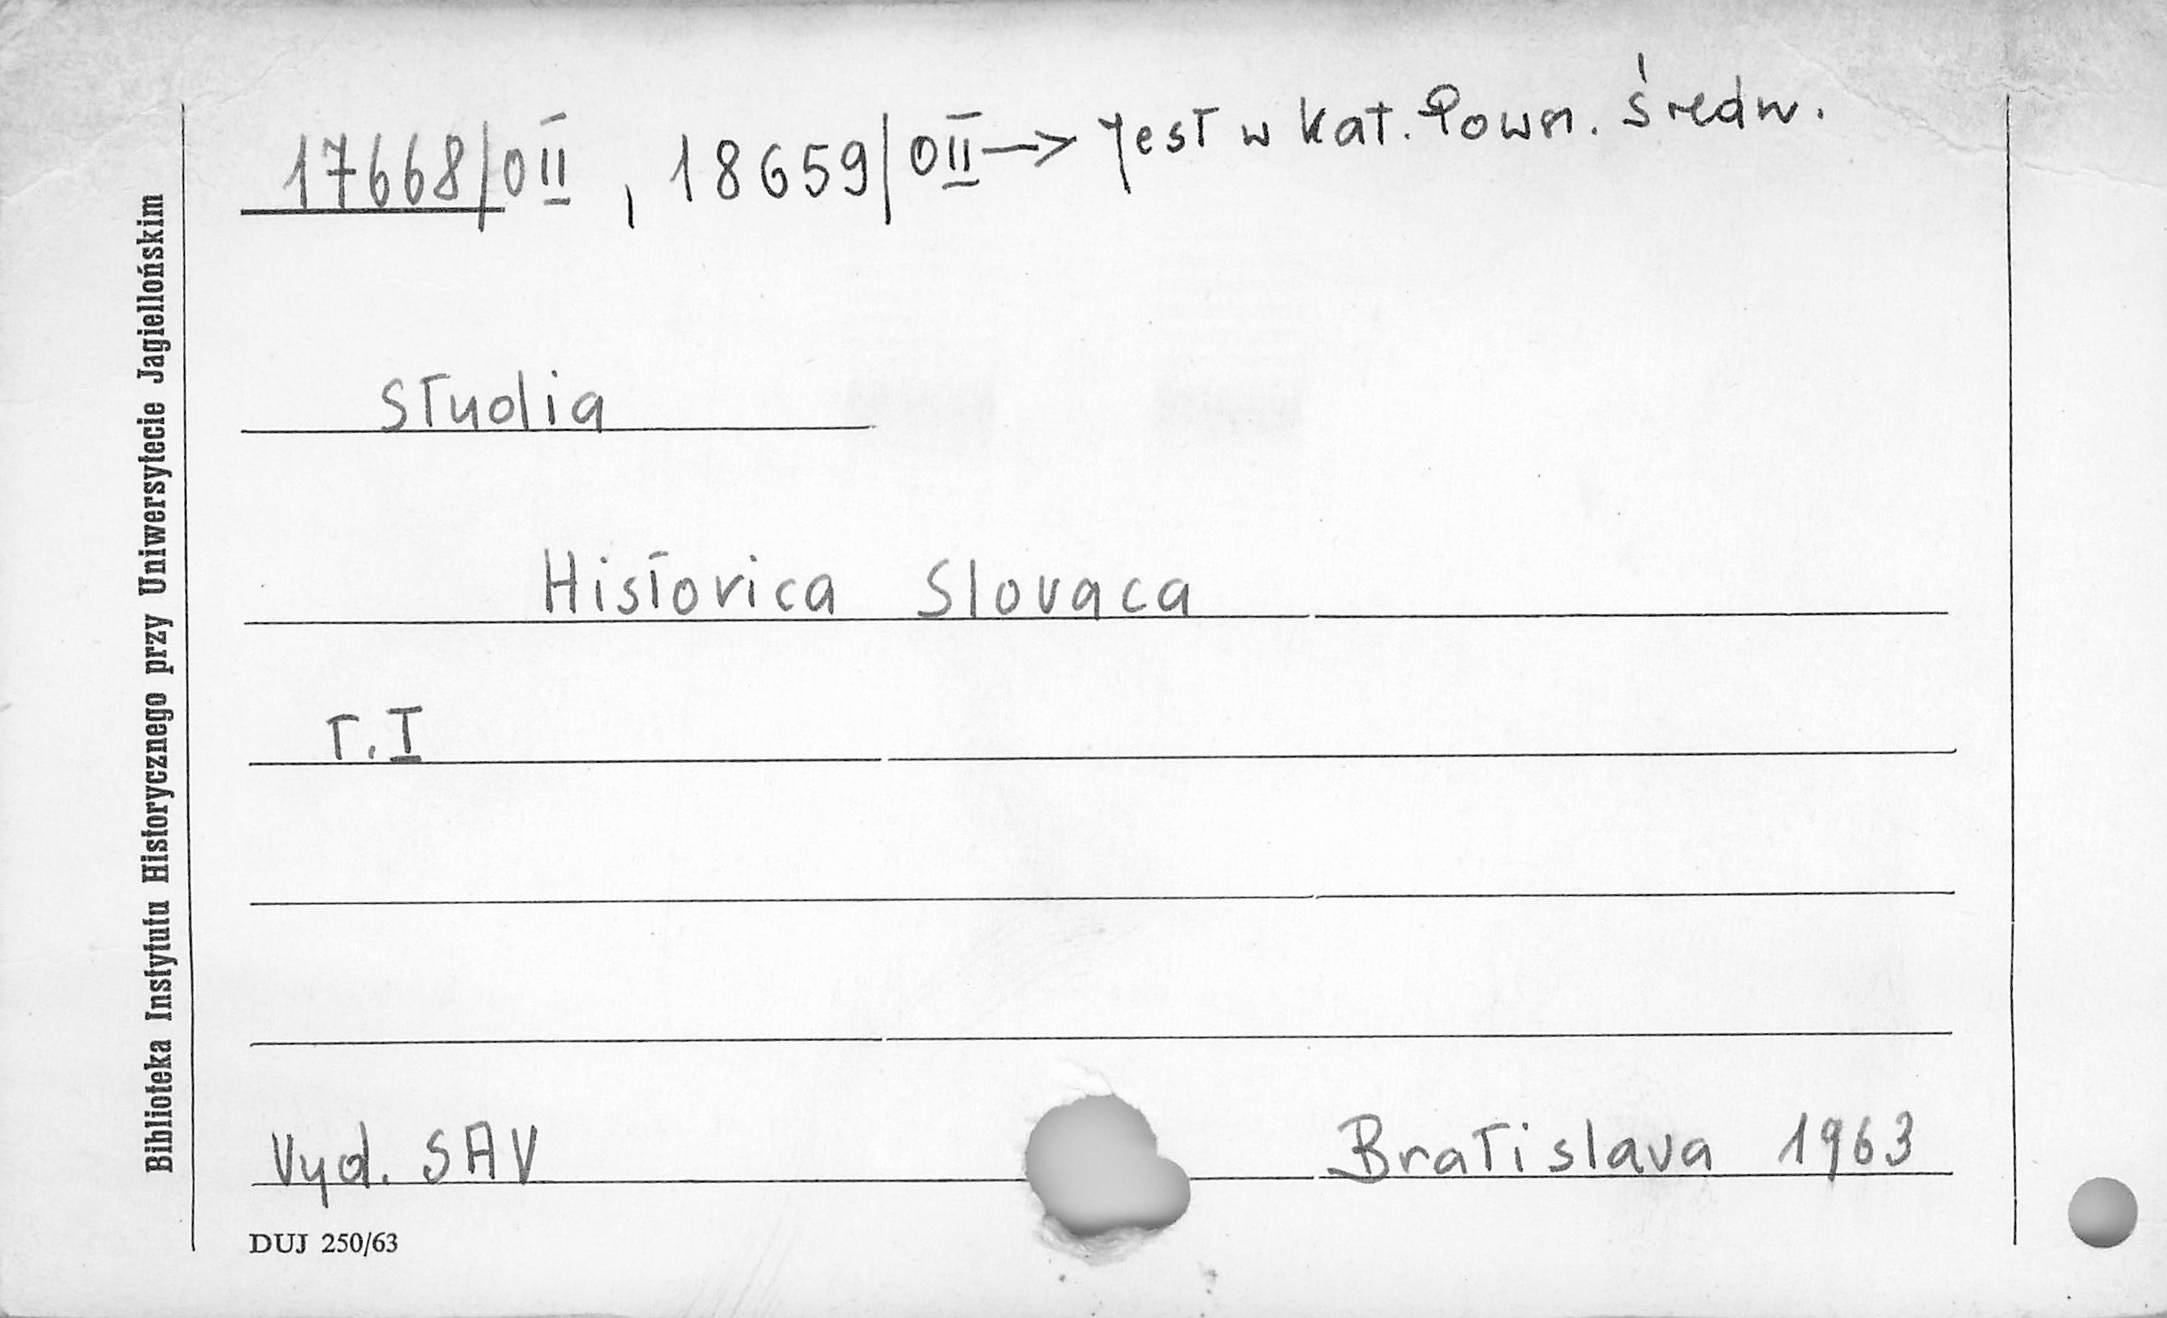 17668/OII, 18659/OII → Jest w kat. Pown. średn.
Studia
Historica Slovaca
T. I
Vyd. SAV Bratislava 1963
DUJ 250/63
Biblioteka Instytutu Historycznego przy Uniwersytecie Jagiellońskim